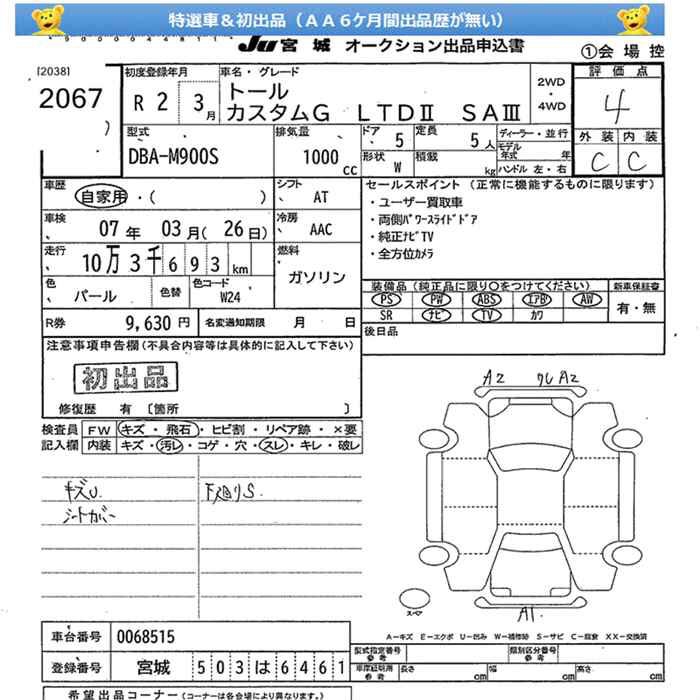 特選車＆初出品（ＡＡ６ケ月間出品歴が無い）
JU 宮 城 オークション出品申込書
①会 場 控
[2038]
2067
初度登録年月
R 2 3月
車名・グレード
トール
カスタムG LTDⅡ SAⅢ
2WD
・
4WD
評 価 点
4
外 装 内 装
C C
型式
DBA-M900S
排気量
1000 cc
ドア 5
定員 5 人
形状 W
積載 kg
ディーラー・並 行
モデル年式 年
ハンドル 左・右
車歴
自家用 ・( )
シフト
AT
車検
07 年 03 月( 26 日)
冷房
AAC
走行
10万3千693 km
燃料
ガソリン
色
パール
色替
色コード
W24
R券 9,630 円
名変通知期限 月 日
セールスポイント (正常に機能するものに限ります)
・ユーザー買取車
・両側ﾊﾟﾜｰｽﾗｲﾄﾞﾄﾞｱ
・純正ﾅﾋﾞTV
・全方位ｶﾒﾗ
装備品(純正品に限り〇をつけてください)
新車保証書
PS PW ABS ｴｱB AW
SR ﾅﾋﾞ TV ｶﾜ
有・無
後日品
注意事項申告欄(不具合内容等は具体的に記入して下さい)
初出品
修復歴 有 〔箇所 〕
検査員記入欄
FW キズ・飛石・ヒビ割・リペア跡・×要
内装 キズ・汚レ・コゲ・穴・スレ・キレ・破レ
キズU
シートカバー
F廻りS
A2 ワレA2
A1
スペア
A−キズ E−エクボ U−凹み W−補修跡 S−サビ C−腐食 XX−交換済
車台番号 0068515
登録番号 宮城 503は6461
型式指定番号 参考
類別区分番号 参考
車庫証明用 参考 長さ cm 幅 cm 高さ cm
希望出品コーナー(コーナーは各会場により異なります。)